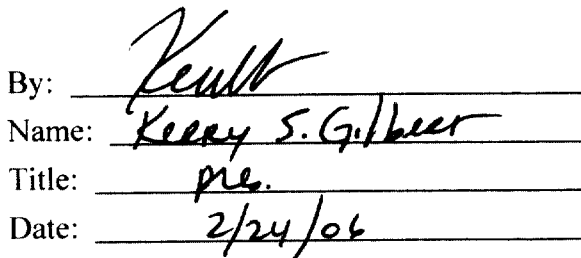 By:
Name: Kerry S. Gilbert
Title: pres.
Date: 2/24/06